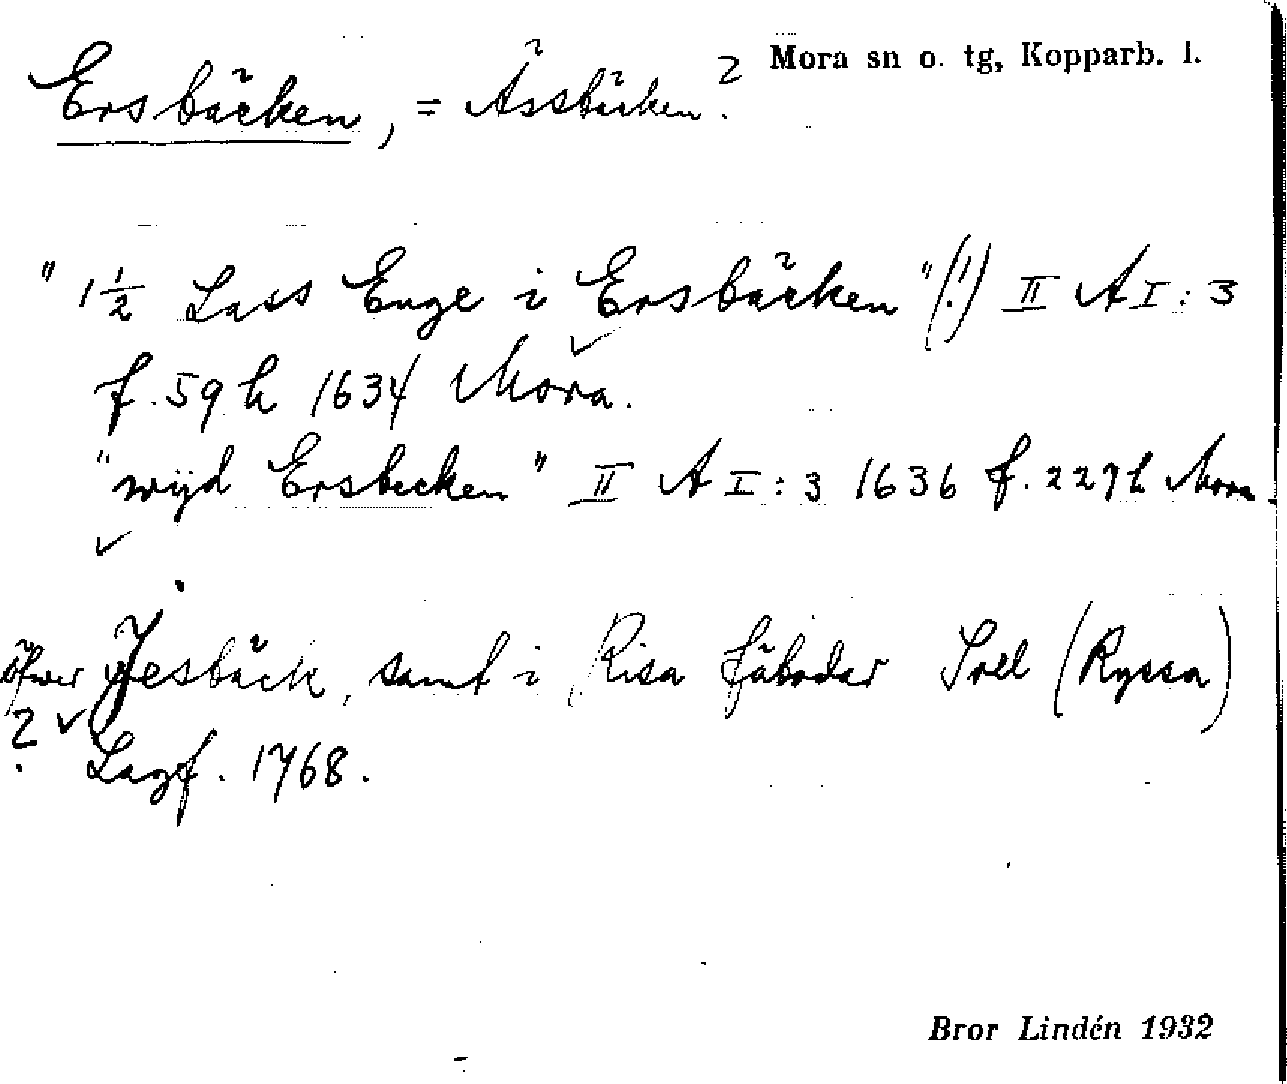 Ersbäcken, = Ässbäcken? Mora sn o. tg, Kopparb. l.
"1½ Lass Enge i Ersbäcken"(!) II A I:3
f. 59 h 1634 Mora.
"wijd Ersbecken" II A I:3 1636 f. 229 h Mora.
öfwer Jesbäck, samt i Risa fäbodar Soll (Ryssa)
? Lagf. 1768.
Bror Lindén 1932